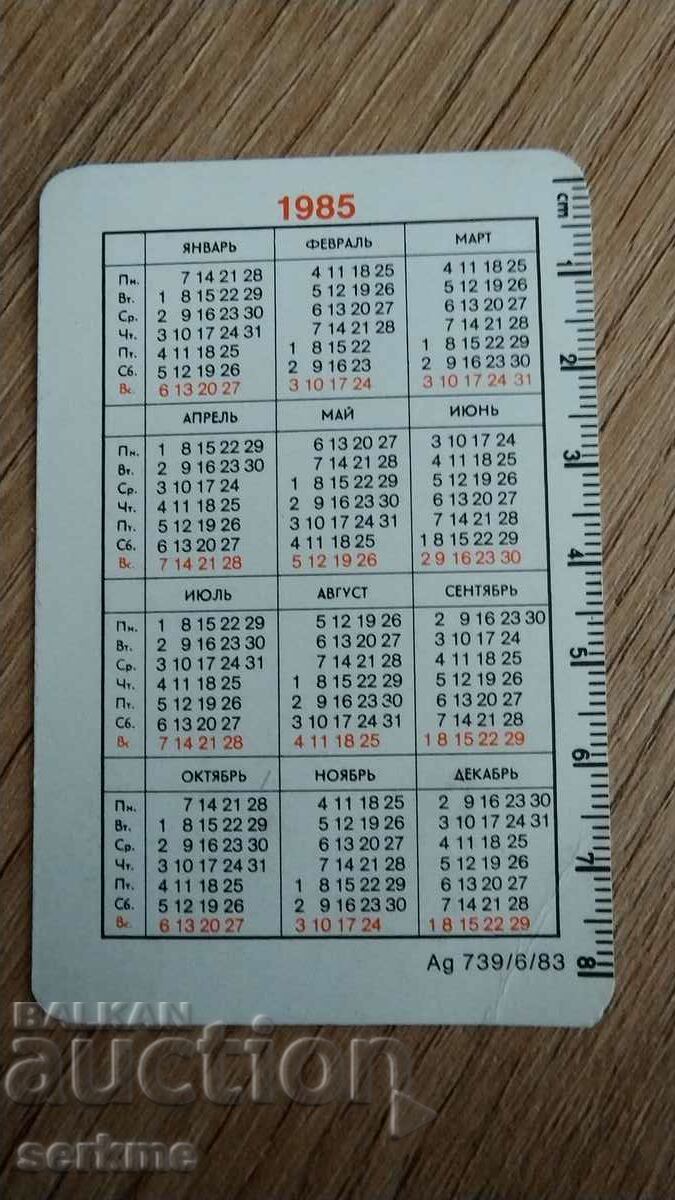 1985
ЯНВАРЬ ФЕВРАЛЬ МАРТ
Пн. 7 14 21 28 4 11 18 25 4 11 18 25
Вт. 1 8 15 22 29 5 12 19 26 5 12 19 26
Ср. 2 9 16 23 30 6 13 20 27 6 13 20 27
Чт. 3 10 17 24 31 7 14 21 28 7 14 21 28
Пт. 4 11 18 25 1 8 15 22 1 8 15 22 29
Сб. 5 12 19 26 2 9 16 23 2 9 16 23 30
Вс. 6 13 20 27 3 10 17 24 3 10 17 24 31
АПРЕЛЬ МАЙ ИЮНЬ
Пн. 1 8 15 22 29 6 13 20 27 3 10 17 24
Вт. 2 9 16 23 30 7 14 21 28 4 11 18 25
Ср. 3 10 17 24 1 8 15 22 29 5 12 19 26
Чт. 4 11 18 25 2 9 16 23 30 6 13 20 27
Пт. 5 12 19 26 3 10 17 24 31 7 14 21 28
Сб. 6 13 20 27 4 11 18 25 1 8 15 22 29
Вс. 7 14 21 28 5 12 19 26 2 9 16 23 30
ИЮЛЬ АВГУСТ СЕНТЯБРЬ
Пн. 1 8 15 22 29 5 12 19 26 2 9 16 23 30
Вт. 2 9 16 23 30 6 13 20 27 3 10 17 24
Ср. 3 10 17 24 31 7 14 21 28 4 11 18 25
Чт. 4 11 18 25 1 8 15 22 29 5 12 19 26
Пт. 5 12 19 26 2 9 16 23 30 6 13 20 27
Сб. 6 13 20 27 3 10 17 24 31 7 14 21 28
Вс 7 14 21 28 4 11 18 25 1 8 15 22 29
ОКТЯБРЬ НОЯБРЬ ДЕКАБРЬ
Пн. 7 14 21 28 4 11 18 25 2 9 16 23 30
Вт. 1 8 15 22 29 5 12 19 26 3 10 17 24 31
Ср. 2 9 16 23 30 6 13 20 27 4 11 18 25
Чт. 3 10 17 24 31 7 14 21 28 5 12 19 26
Пт. 4 11 18 25 1 8 15 22 29 6 13 20 27
Сб. 5 12 19 26 2 9 16 23 30 7 14 21 28
Вс. 6 13 20 27 3 10 17 24 1 8 15 22 29
Ag 739/6/83
cm 1 2 3 4 5 6 7 8
BALKAN
auction
serkme